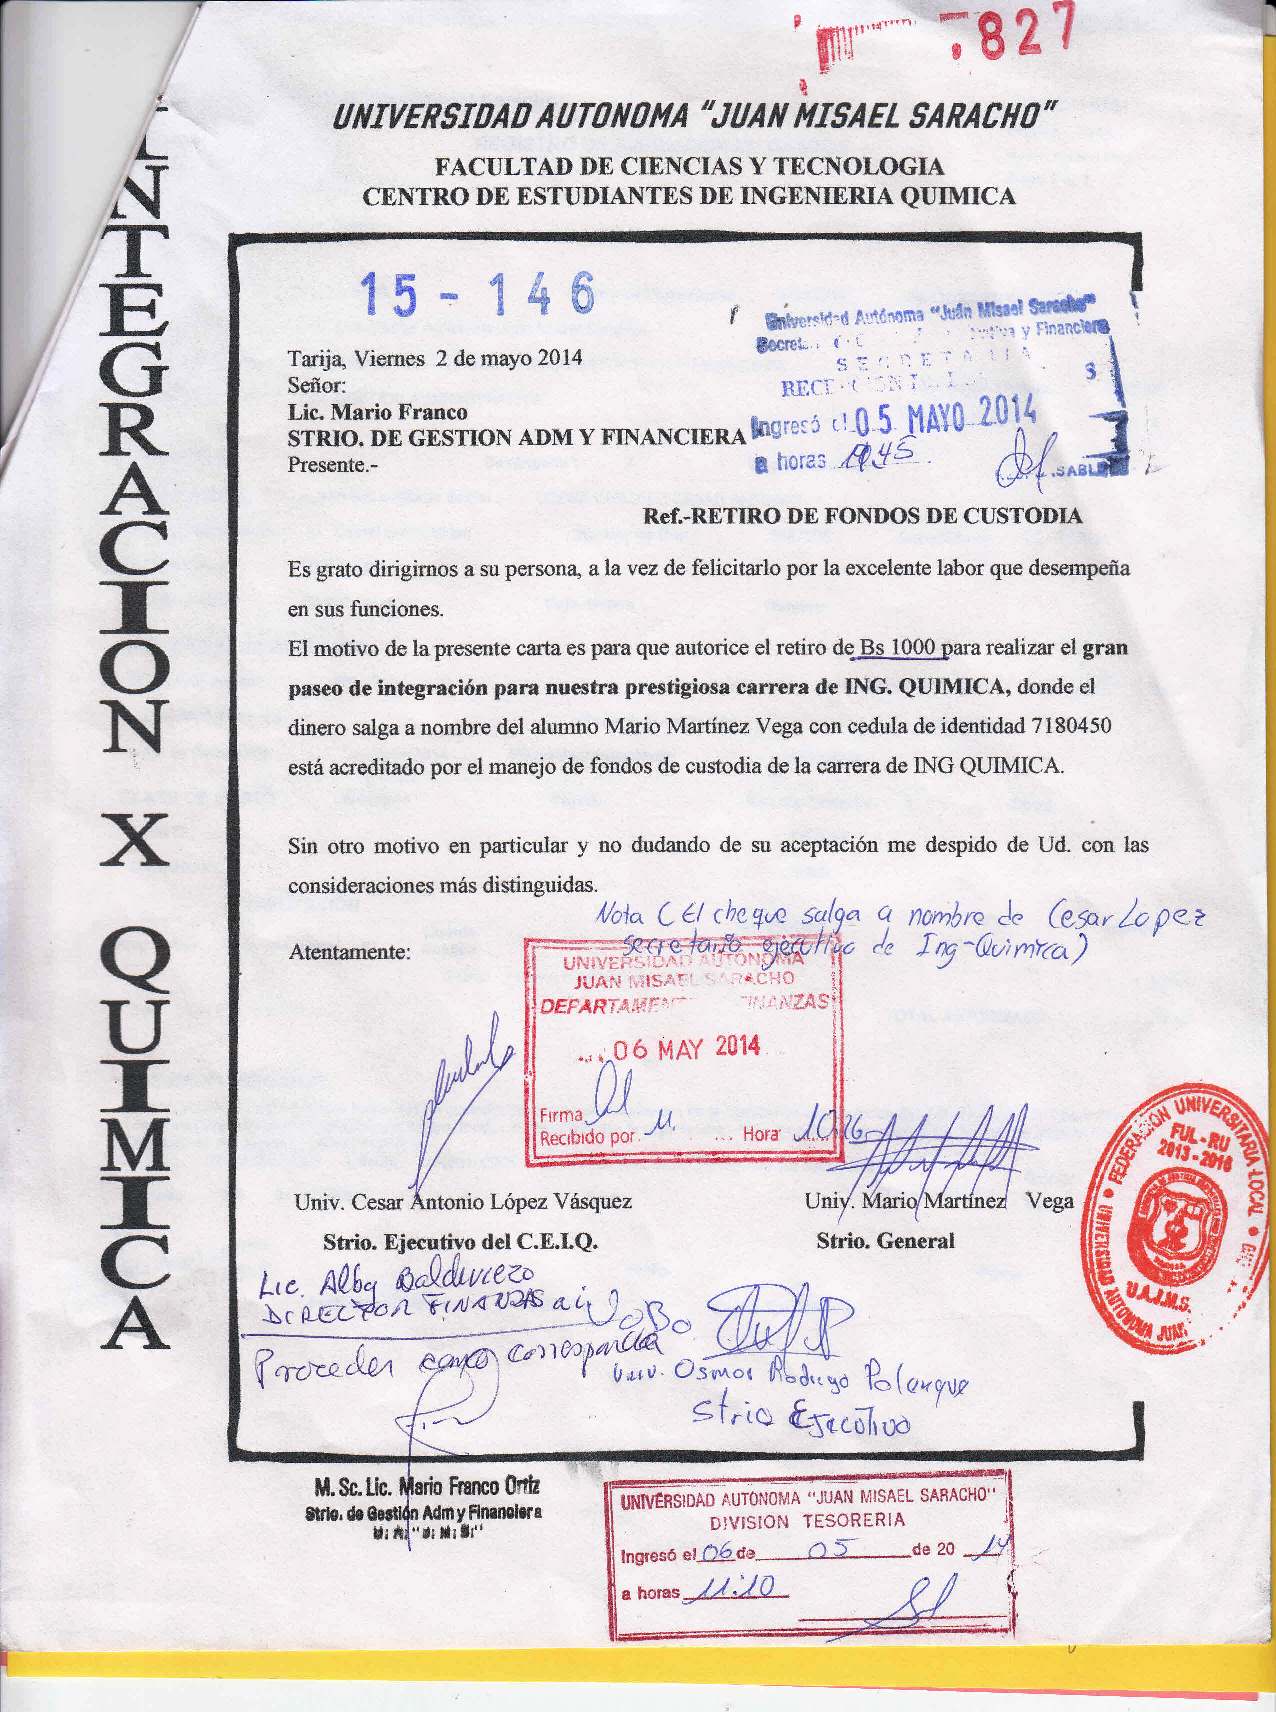 827
UNIVERSIDAD AUTONOMA "JUAN MISAEL SARACHO"
FACULTAD DE CIENCIAS Y TECNOLOGIA
CENTRO DE ESTUDIANTES DE INGENIERIA QUIMICA
INTEGRACION X QUIMICA
15 - 146
Universidad Autónoma "Juan Misael Saracho"
y Financiera
SECRETARIA
Ingresó el 05 MAYO 2014
a horas
Tarija, Viernes 2 de mayo 2014
Señor:
Lic. Mario Franco
STRIO. DE GESTION ADM Y FINANCIERA
Presente.-
Ref.-RETIRO DE FONDOS DE CUSTODIA
Es grato dirigirnos a su persona, a la vez de felicitarlo por la excelente labor que desempeña
en sus funciones.
El motivo de la presente carta es para que autorice el retiro de Bs 1000 para realizar el gran
paseo de integración para nuestra prestigiosa carrera de ING. QUIMICA, donde el
dinero salga a nombre del alumno Mario Martínez Vega con cedula de identidad 7180450
está acreditado por el manejo de fondos de custodia de la carrera de ING QUIMICA.
Sin otro motivo en particular y no dudando de su aceptación me despido de Ud. con las
consideraciones más distinguidas.
Nota (El cheque salga a nombre de Cesar Lopez
secretario ejecutivo de Ing-Quimica)
Atentamente:
UNIVERSIDAD AUTONOMA
JUAN MISAEL SARACHO
DEPARTAMENTO FINANZAS
06 MAY 2014
Firma
Recibido por Hora 10:26
Univ. Cesar Antonio López Vásquez
Strio. Ejecutivo del C.E.I.Q.
Univ. Mario Martínez Vega
Strio. General
FEDERACION UNIVERSITARIA LOCAL
FUL-RU
2013-2016
U.A.J.M.S.
UNIVERSIDAD AUTONOMA JUAN
Lic. Alba Baldivieso
DIRECTOR FINANZAS a.i
VoBo
Proceder como corresponda
Univ. Osmar Rodrigo Polanque
Strio Ejecutivo
M. Sc. Lic. Mario Franco Ortiz
Strio. de Gestión Adm y Financiera
U.A. "J.M.S."
UNIVERSIDAD AUTONOMA "JUAN MISAEL SARACHO"
DIVISION TESORERIA
Ingresó el 06 de 05 de 20 14
a horas 11:10